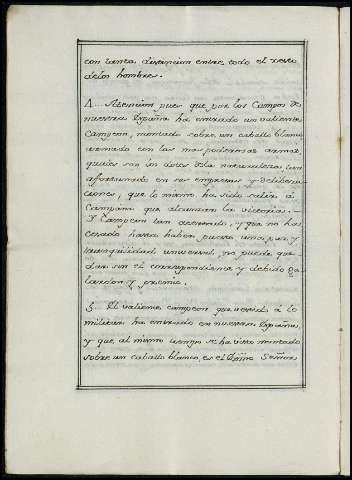 con tanta distincion entre todo el resto
delos hombres.
4. Atencion pues que por los Campos de
nuestra España ha entrado un valiente
Campeon, montado sobre un caballo blanco
armado con las mas poderosas armas
quales son los dotes dela naturaleza, tan
afortunado en sus empresas y delibera
ciones, que lo mismo ha sido salir à
Campaña que alcanzar la victoria.
Y Campeon tan denodado, y que no ha
cesado hasta haber puesto una paz, y
tranquilidad universal, no puede que
dar sin el correspondiente y debido Ga
lardon y premio.
5. El valiente campeon que vestido à lo
militar ha entrado en nuestra España,
y que, al mismo tiempo se ha visto montado
sobre un caballo blanco, es el Señor